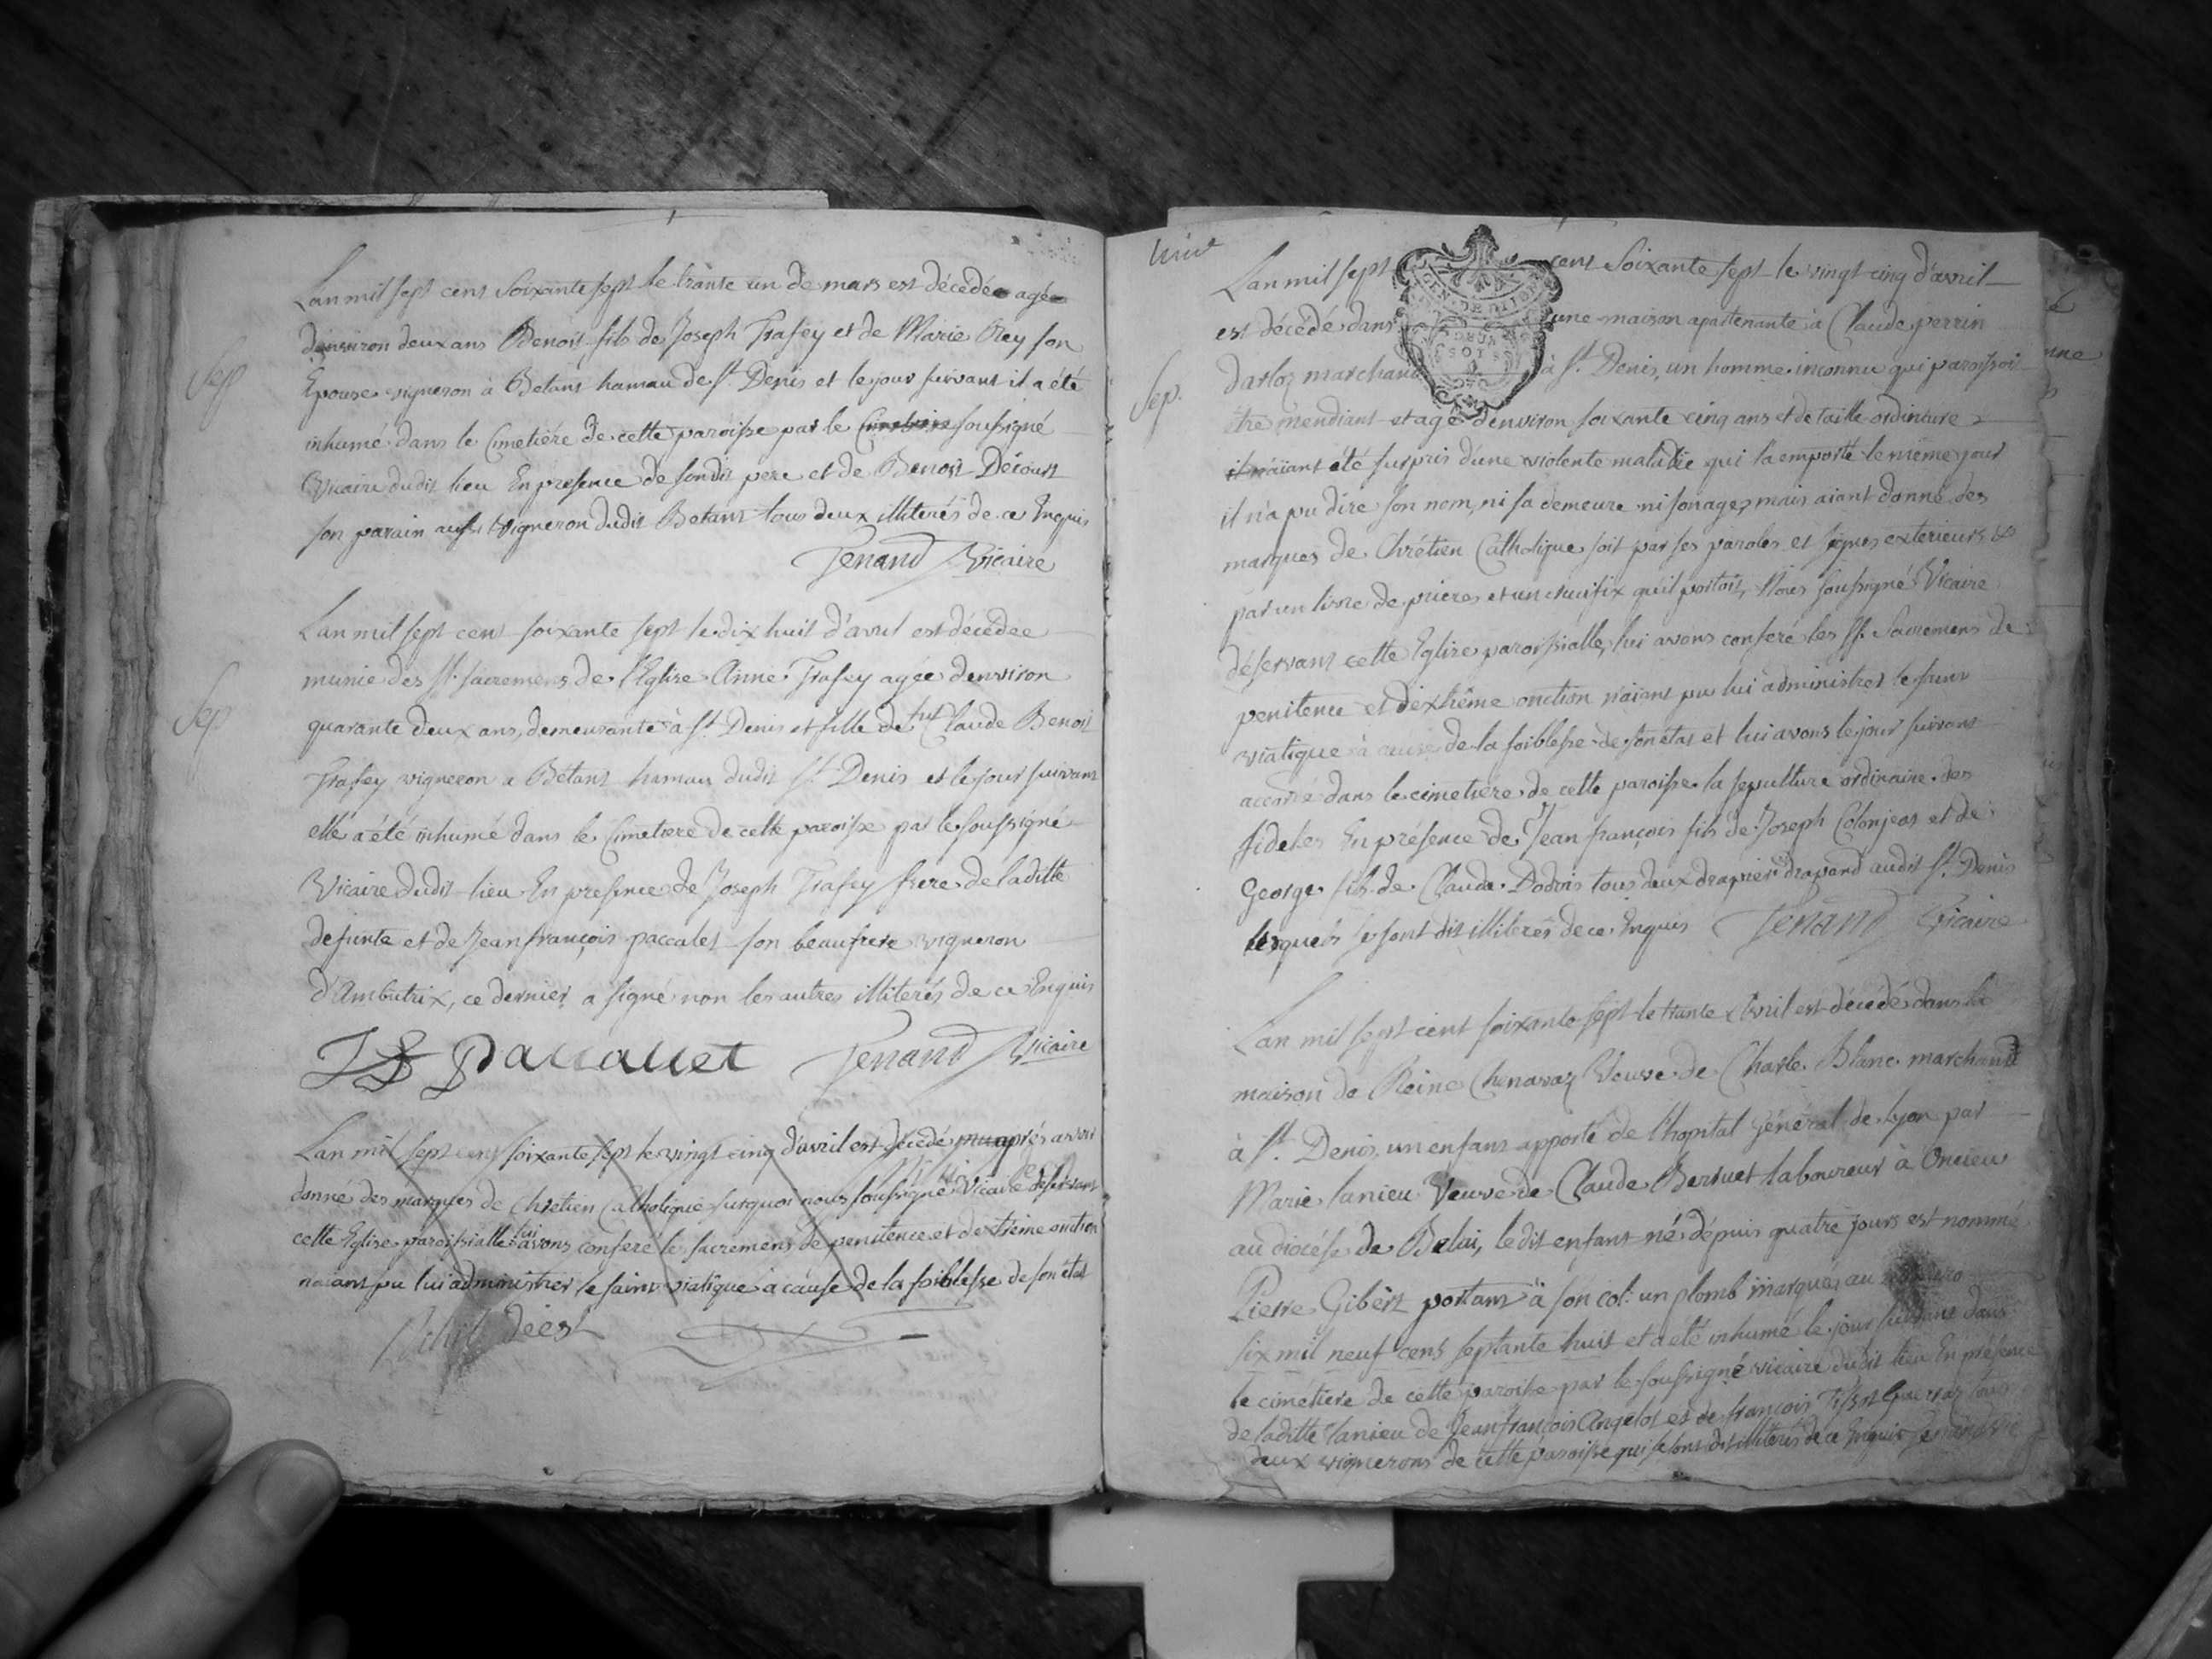 Lan mil sept cent Soixante sept le trante un de mars est décédé agé
denviron deux ans Benoit fils de Joseph Trafey et de Marie Rey son
Sep
Epouse vigneron à Betant hamau de St. Denis et le jour suivant il a été
inhumé dans le Cimetiére de cette paroisse par le soussigné
Vicaire dudit lieu En presence de sondit pere et de Benoit Décourt
son parain aussi vigneron dudit Betant tous deux illiterés de ce Enquis
Tenand Vicaire
Lan mil sept cent soixante sept le dix huit d'avril est décédée
munie des SS. sacremens de l'Eglise Anne Trafey agée denviron
Sep
quarante deux ans, demeurante à St. Denis et fille de fut Claude Benoit
Trafey vigneron a Bétant hamau dudit St. Denis et le jour suivant
elle a été inhumé dans le Cimetiere de cette paroisse par le soussigné
Vicaire dudit lieu En presence de Joseph Trafey frere de laditte
defunte et de Jean françois paccalet son beaufrere vigneron
d'Ambutrix, ce dernier a signé non les autres illiterés de ce Enquis
JF Paccallet Tenand Vicaire
Lan mil sept cent soixante sept le vingt cinq d'avril est décédé après avoir
donné des marques de Chretien Catholique surquoi nous soussigné Vicaire deservant
cette Eglise paroissialle lui avons conferé le sacremens de penitence et dextrême onction
naiant pu lui administrer le saint viatique à cause de la foiblesse de son état
Lan mil sept cent Soixante sept le vingt cinq d'avril
est décédé dans une maison apartenante à Claude perrin
Sep.
darloz marchand à St. Denis, un homme inconnu qui paroissoit
être mendiant et agé denviron soixante cinq ans et de taille ordinaire
aiant été surpris d'une violente maladie qui la emporté le même jour
il n'a pu dire son nom, ni sa demeure ni son age, mais aiant donné des
marques de Chrétien Catholique soit par ses paroles et signes exterieurs
par un livre de prieres et un crucifix quil portoit, Nous soussigné Vicaire
déservant cette Eglise paroissialle, lui avons conferé les SS. Sacremens de
penitence et d'extrême onction n'aiant pu lui administrer le saint
viatique à cause de la foiblesse de son état et lui avons le jour suivant
accordé dans le cimetiére de cette paroisse la sepulture ordinaire des
fideles En présence de Jean françois fils de Joseph Colonjeat et de
George fils de Claude Dodois tous deux drapier drapend audit St. Denis
lesquels se sont dit illiterés de ce Enquis Tenand Vicaire
Lan mil sept cent soixante sept le trante Avril est décédé dans la
maison de Reine Chenavaz Veuve de Charle Blanc marchand
à St. Denis, un enfant apporté de l'hopital général de Lyon par
Marie Lanieu Veuve de Claude Berruet laboureur à Oncieu
au diocése de Belai, ledit enfant né depuis quatre jours est nommé
Pierre Gibért portant à son col un plomb marqué au
six mil neuf cens septante huit et a été inhumé le jour suivant dans
le cimétiere de cette paroisse par le soussigné vicaire dudit lieu En présence
de laditte Lanieu de Jean françois Angelot et de françois tous
deux vignerons de cette paroisse qui se sont dit illiterés de ce Enquis Tenand